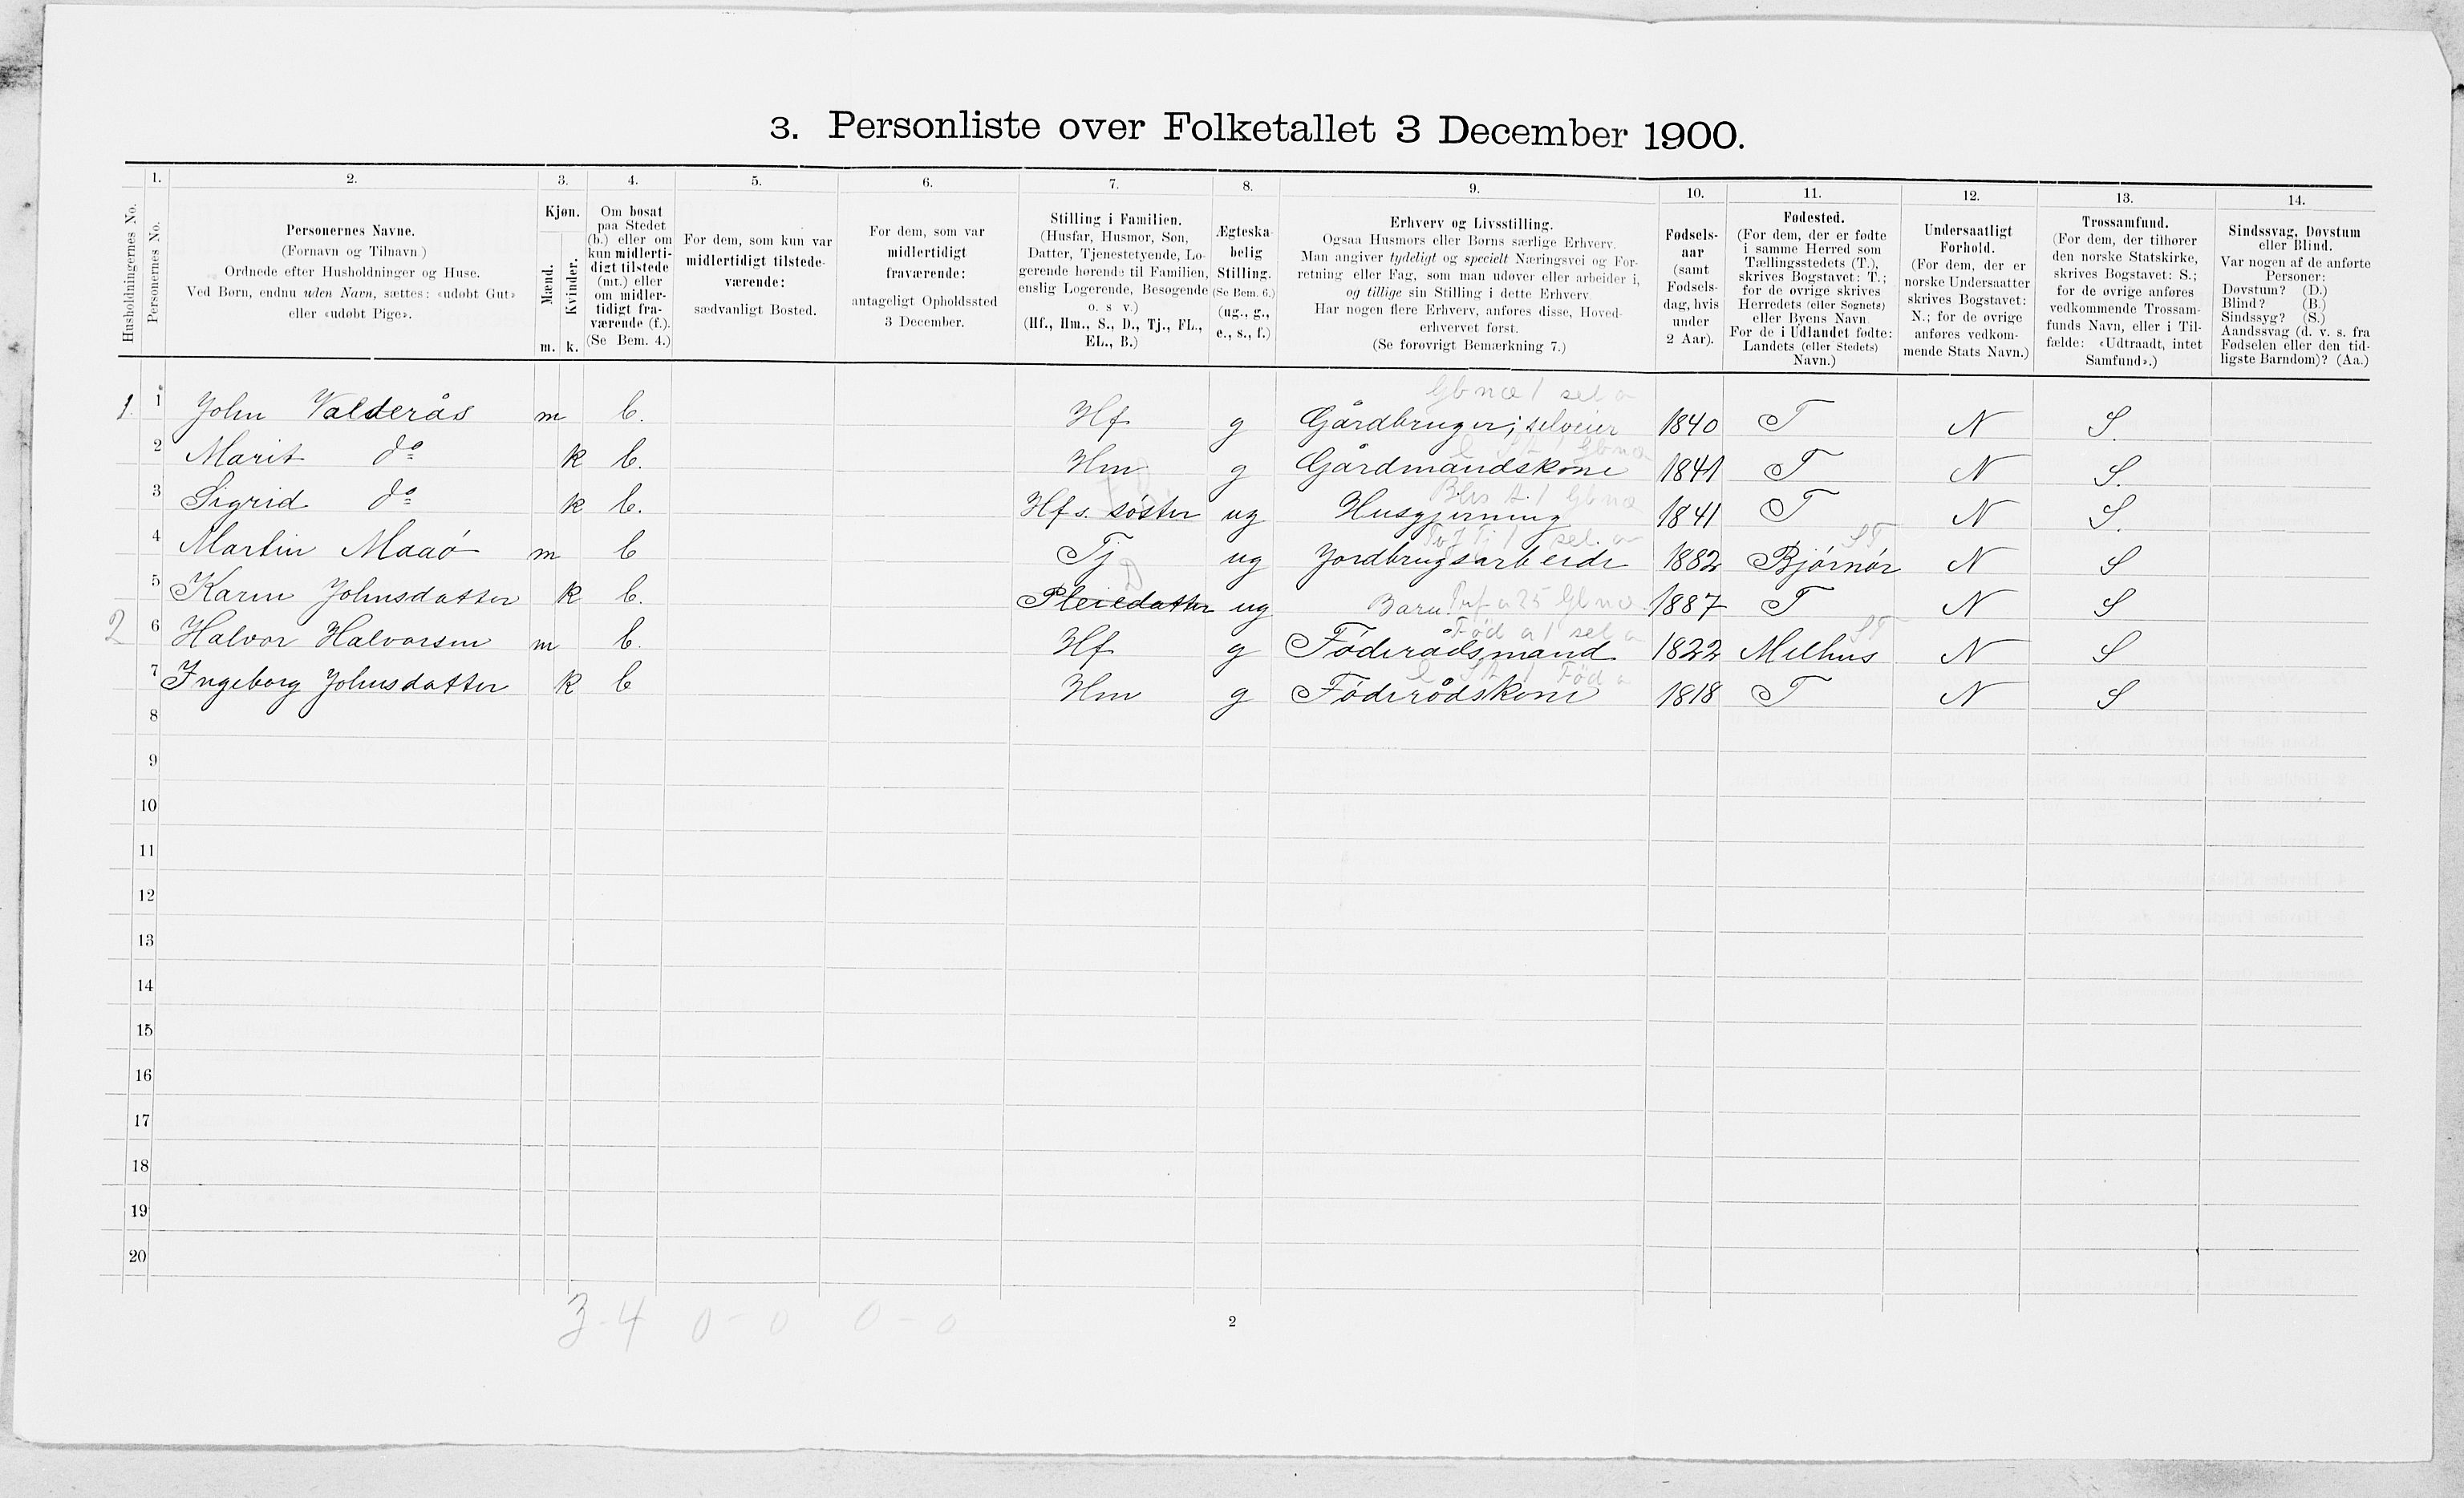 3. Personliste over Folketallet 3 December 1900.
1. 2. 3. 4. 5. 6. 7. 8. 9. 10. 11. 12. 13. 14.
Husholdningernes No.
Personernes No.
Personernes Navne.
(Fornavn og Tilnavn)
Ordnede efter Husholdninger og Huse.
Ved Børn, endnu uden Navn, sættes: «udøbt Gut»
eller «udøbt Pige».
Kjøn.
Mænd.
Kvinder.
m. k.
Om bosat
paa Stedet
(b.) eller om
kun midlerti-
digt tilstede
(mt.) eller
om midler-
tidigt fra-
værende (f.).
(Se Bem. 4.)
For dem, som kun var
midlertidigt tilstede-
værende:
sædvanligt Bosted.
For dem, som var
midlertidigt
fraværende:
antageligt Opholdssted
3 December.
Stilling i Familien.
(Husfar, Husmor, Søn,
Datter, Tjenestetyende, Lo-
gerende hørende til Familien,
enslig Logerende, Besøgende
o. s v.)
(Hf., Hm., S., D., Tj., FL.,
EL., B.)
Ægteska-
belig
Stilling.
(Se Bem. 6.)
(ug., g.,
e., s., f.)
Erhverv og Livsstilling.
Ogsaa Husmors eller Børns særlige Erhverv.
Man angiver tydeligt og specielt Næringsvei og For-
retning eller Fag, som man udøver eller arbeider i,
og tillige sin Stilling i dette Erhverv
Har nogen flere Erhverv, anføres disse, Hoved-
erhvervet først.
(Se forøvrigt Bemærkning 7.)
Fødsels-
aar
(samt
Fødsels-
dag, hvis
under
2 Aar).
Fødested.
(For dem, der er fødte
i samme Herred som
Tællingsstedets (T.),
skrives Bogstavet: T.;
for de øvrige skrives
Herredets (eller Sognets)
eller Byens Navn
For de i Udlandet fødte:
Landets (eller Stedets)
Navn.)
Undersaatligt
Forhold.
(For dem, der er
norske Undersaatter
skrives Bogstavet:
N.; for de øvrige
anføres vedkom-
mende Stats Navn.)
Trossamfund.
(For dem, der tilhører
den norske Statskirke,
skrives Bogstavet: S.;
for de øvrige anføres
vedkommende Trossam-
funds Navn, eller i Til-
fælde: «Udtraadt, intet
Samfund».)
Sindssvag, Døvstum
eller Blind.
Var nogen af de anførte
Personer:
Døvstum? (D.)
Blind? (B.)
Sindssyg? (S.)
Aandssvag (d. v. s. fra
Fødselen eller den tid-
ligste Barndom)? (Aa.)
1. 1 John Valderås m b. Hf g Gårdbruger; selveier 1840 T N S.
2 Marit do k b. Hm g Gårdmandskone 1841 T N S.
3 Sigrid do k b. Hfs. søster ug Husgjerning 1841 T N S.
4 Martin Maaø m b Tj ug Jordbrugsarbeide 1882 Bjørnør N S
5 Karen Johnsdatter k b. Pleiedatter ug Barn 1887 T N S
2 6 Halvor Halvorsen m b. Hf g Føderådsmand 1822 Melhus N S
7 Ingeborg Johnsdatter k b Hm g Føderådskone 1818 T N S
8
9
10
11
12
13
14
15
16
17
18
19
20
3 - 4 0 - 0 0 - 0
2